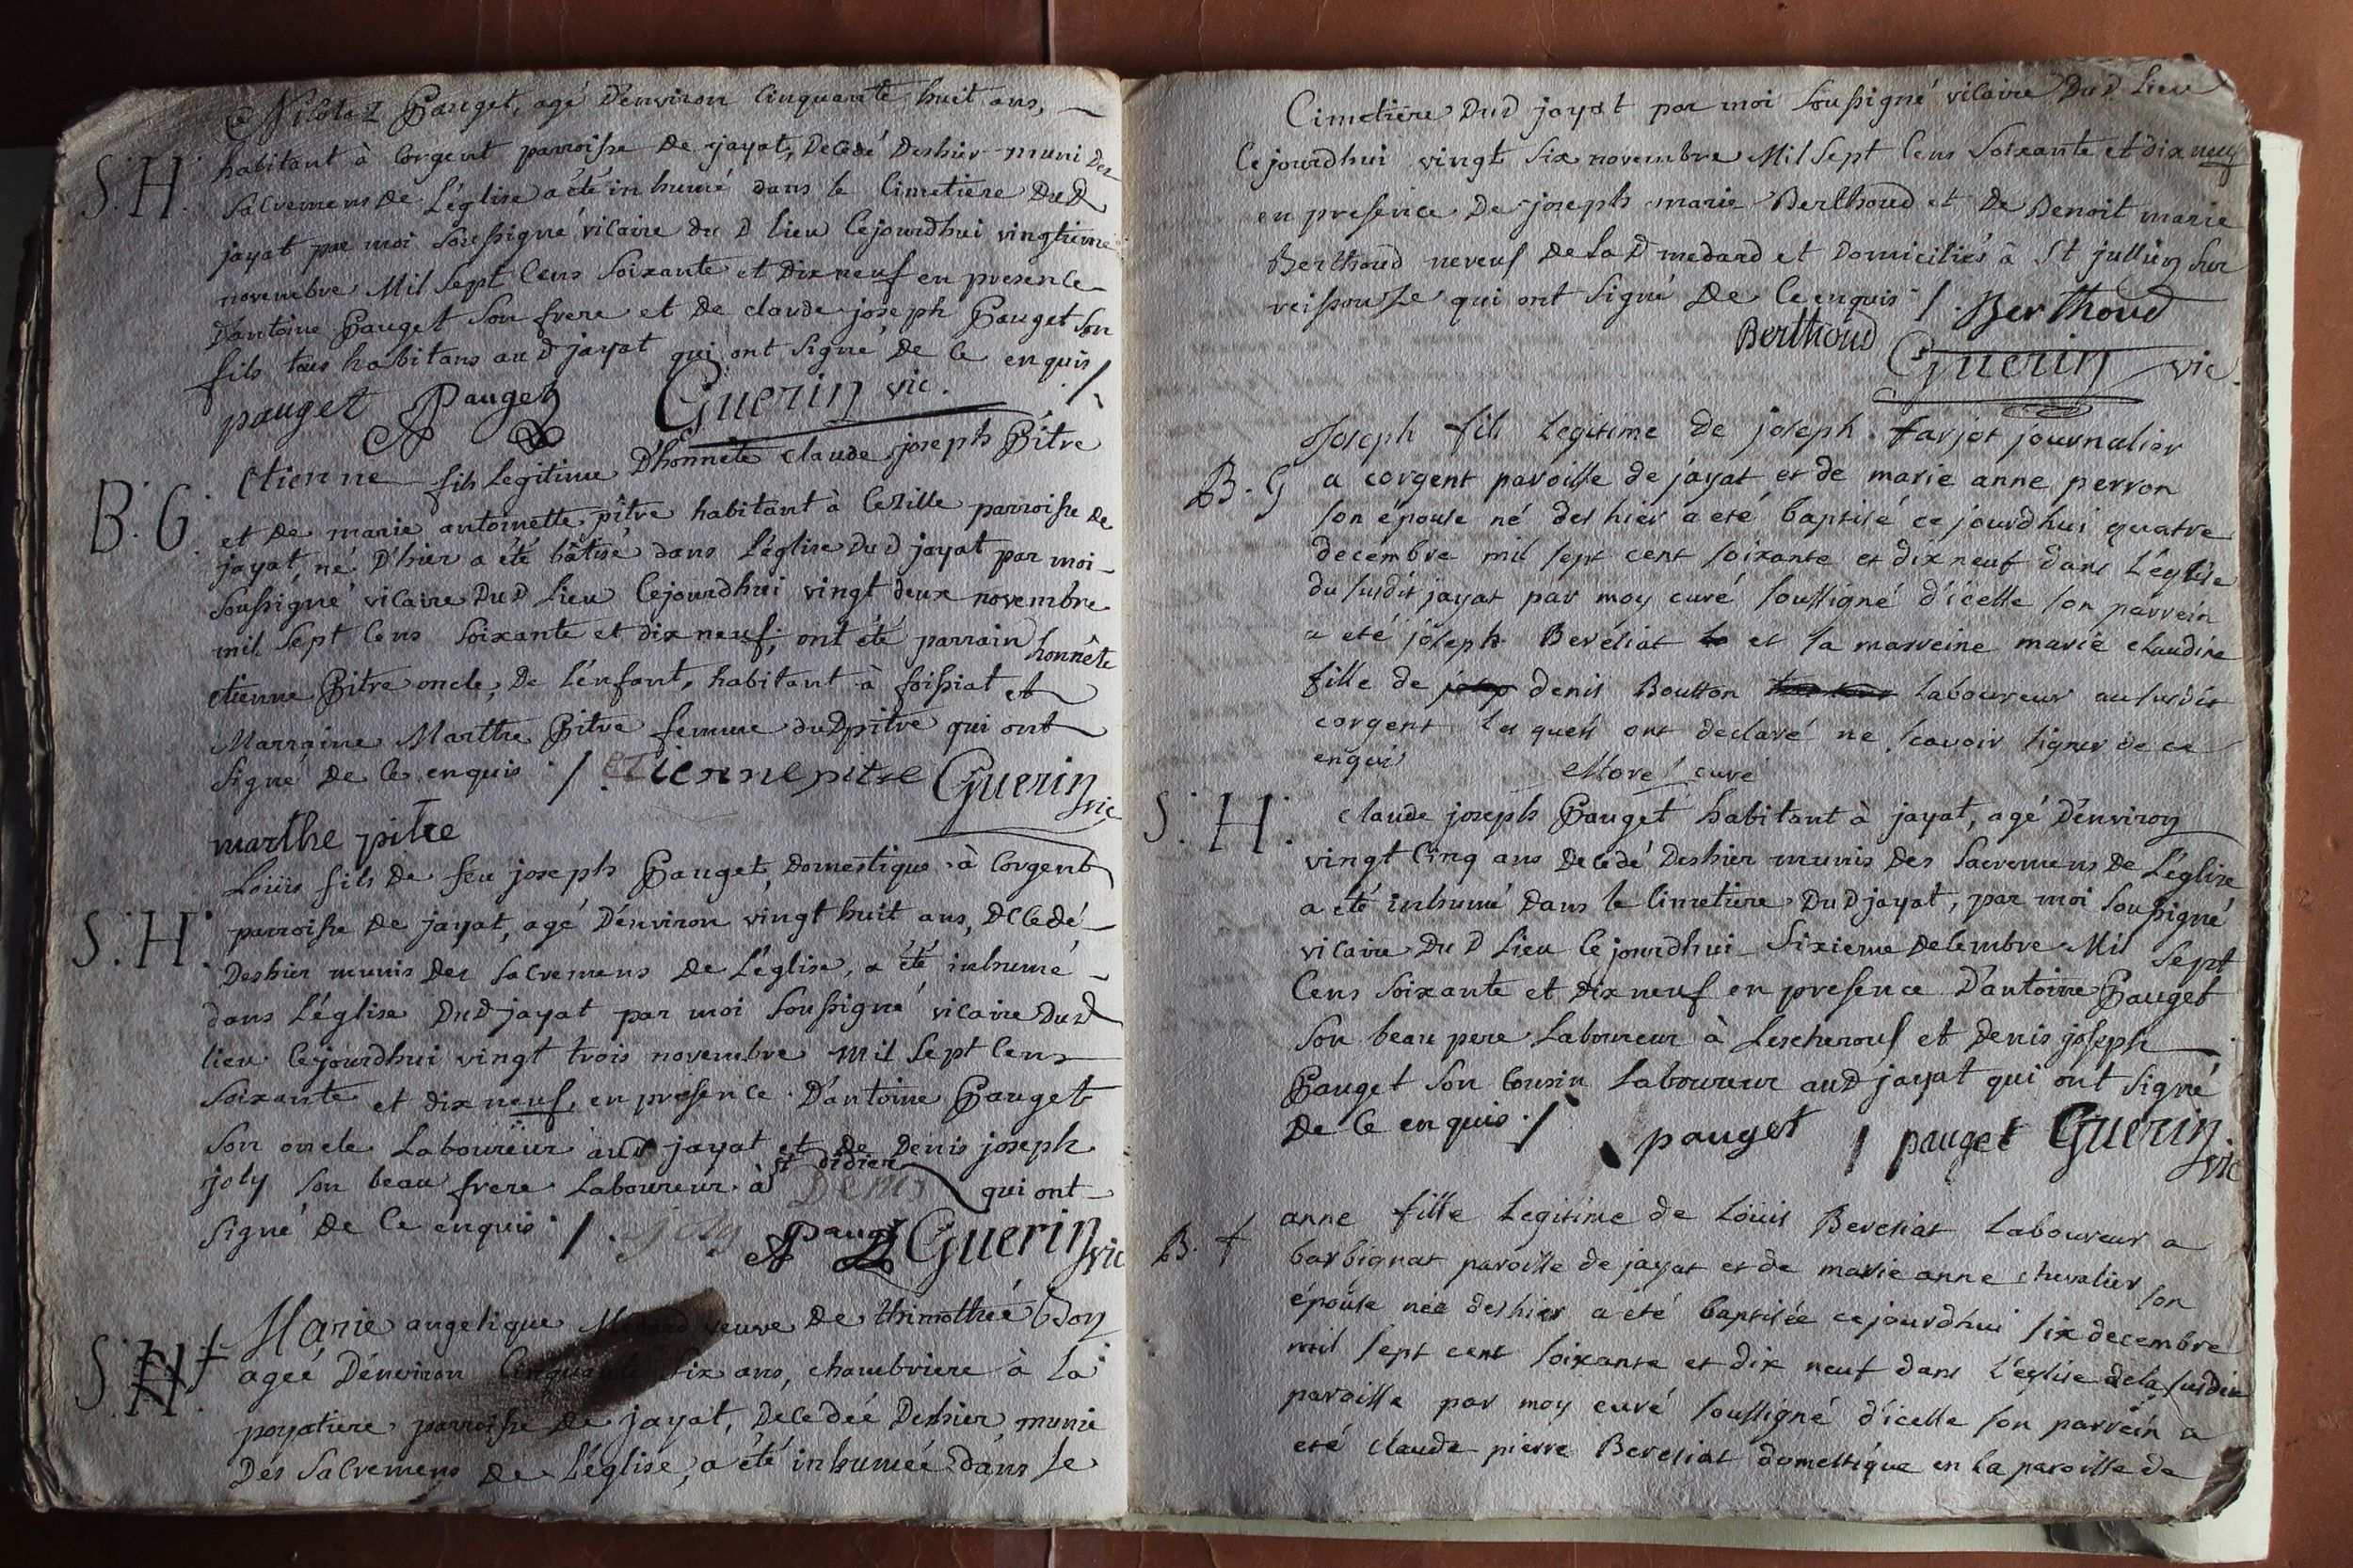 Nicolaz Pauget, agé D'environ Cinquante huit ans,
S. H. habitant à Corgent parroisse de jayat, Decedé Deshier muni Des
Sacremens de L'église a été inhumé dans le Cimetiere Dud
jayat par moi soussigné vicaire du d lieu Cejourdhui vingtieme
novembre Mil Sept Cens Soixante et Dix neuf en presence
D'antoine Pauget Son frere et De claude joseph Pauget Son
fils tous habitans au d jayat qui ont signé De Ce enquis /.
pauget Pauget Guerin vic.
B. G. Etienne fils Legitime D'honnête claude joseph Pitre
et De marie antoinette pitre habitant à Cezille parroisse De
jayat, né D'hier a été bâtisé dans L'église Du d jayat par moi
soussigné vicaire Du D Lieu Cejourdhui vingt deux novembre
mil Sept Cens Soixante et dix neuf; ont été parrain honnête
etienne Pitre oncle De L'enfant, habitant à foissiat et
Marraine Marthe Pitre femme dud pitre qui ont
Signé De Ce enquis ./. etienne pitre Guerin vic
marthe pitre
Loüis fils De feu joseph Pauget, Domestique à Corgent
S. H. parroisse De jayat, agé D'environ vingt huit ans, Decedé
Deshier munis Des Sacremens De L'église, a été inhumé
dans L'église Dud jayat par moi Soussigné vicaire Dud
lieu Cejourdhui vingt trois novembre Mil Sept Cens
Soixante et dix neuf, en presence D'antoine Pauget
Son oncle Laboureur aud jayat et De Denis joseph
joly Son beau frere Laboureur à St didier qui ont
Signé De Ce enquis ./. joly Pauget Guerin vic
S. H. † Marie angelique Medard veuve De thimothée
ageé D'environ Cinquante Six ans, chambriere à La
poyatiere parroisse De jayat, Decedée Deshier munie
Des Sacremens De L'église, a été inhumée dans Le
Cimetiere Du D jayat par moi Soussigné vicaire Du D. Lieu
Cejourdhui vingt Six novembre Mil Sept Cens Soixante et dix neuf
en presence De joseph marie Berthoud et De Benoit marie
Berthoud neveuf De La D medard et Domiciliés à St jullien Sur
reissouze qui ont Signé De Ce enquis ./. Berthoud
Berthoud Guerin vic.
Joseph fils Legitime de joseph farjot journalier
B. G a corgent paroisse de jayat et de marie anne perron
son épouse né des hier a eté baptisé ce jourdhui quatre
decembre mil sept cent soixante et dix neuf dans L'eglise
du susdit jayat par moy curé soussigné d'icelle son parrein
a eté joseph Bereziat et sa marreine marie claudine
fille de denis Boutton laboureur au susdit
corgent les quels ont declaré ne scavoir signer de ce
enquis Moré curé
S. H. Claude joseph Pauget habitant à jayat, agé D'environ
vingt Cinq ans Decedé Deshier munis Des Sacremens De L'église
a été inhumé Dans le Cimetiere Du D jayat, par moi Soussigné
vicaire Du D Lieu Cejourdhui Sixieme Decembre Mil Sept
Cens Soixante et Dix neuf en presence D'antoine Pauget
Son beau pere Laboureur à Lescheroul et Denis joseph
Pauget Son Cousin Laboureur aud jayat qui ont Signé
De Ce enquis ./. pauget / pauget Guerin vic
anne fille Legitime de Loüis Bereziat Laboureur a
B. f barbignat paroisse de jayat et de marie anne chevalier son
épouse née des hier a été baptisée cejourdhui six decembre
mil sept cent soixante et dix neuf dans L'eglise dela susdite
paroisse par moy curé soussigné d'icelle son parrein a
eté claude pierre Bereziat domestique en la paroisse de